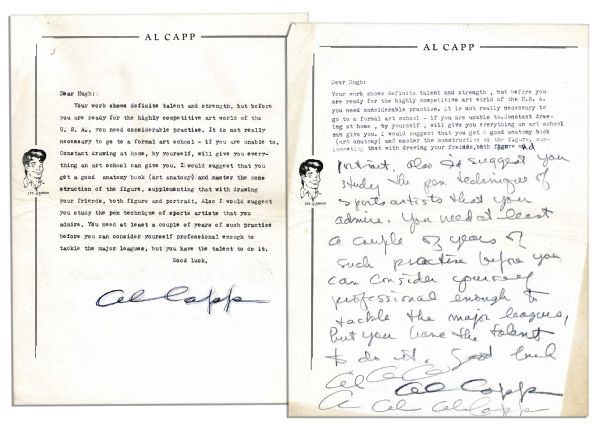 AL CAPP
Dear Hugh::
Your work shows definite talent and strength, but before
you are ready for the highly competitive art world of the
U. S. A., you need considerable practise. It is not really
necessary to go to a formal art school - if you are unable to.
Constant drawing at home, by yourself, will give you every-
thing an art school can give you. I would suggest that you
get a good anatomy book (art anatomy) and master the cons
struction of the figure, supplementing that with drawing
your friends, both figure and portrait. Also I would suggest
you study the pen technique of sports artists that you
admire. You need at least a couple of years of such practise
before you can consider yourself professional enough to
tackle the major leagues, but you have the talent to do it.
Good luck,
LI'L ABNER
Al Capp
AL CAPP
Dear Hugh:
Your work shows definite talent and strength, but before you
are ready for the highly competitive art world of the U.S. A.
you need considerable practise. It is not really necessary to
go to a formal art school - if you are unable to. Constant draw-
ing at home, by yourself, will give you everything an art school
can give you. I would suggest that you get a good anatomy book
(art anatomy) and master the construction of the figure, sup-
lementing that with drawing your freinds, both figure and
portrait. Also I'd suggest you
study the pen technique of
sports artists that you
admire. You need at least
a couple of years of
such practise before you
can consider yourself
professional enough to
tackle the major leagues,
but you have the talent
to do it. Good luck
LI'L ABNER
Al Capp
Al Al Capp